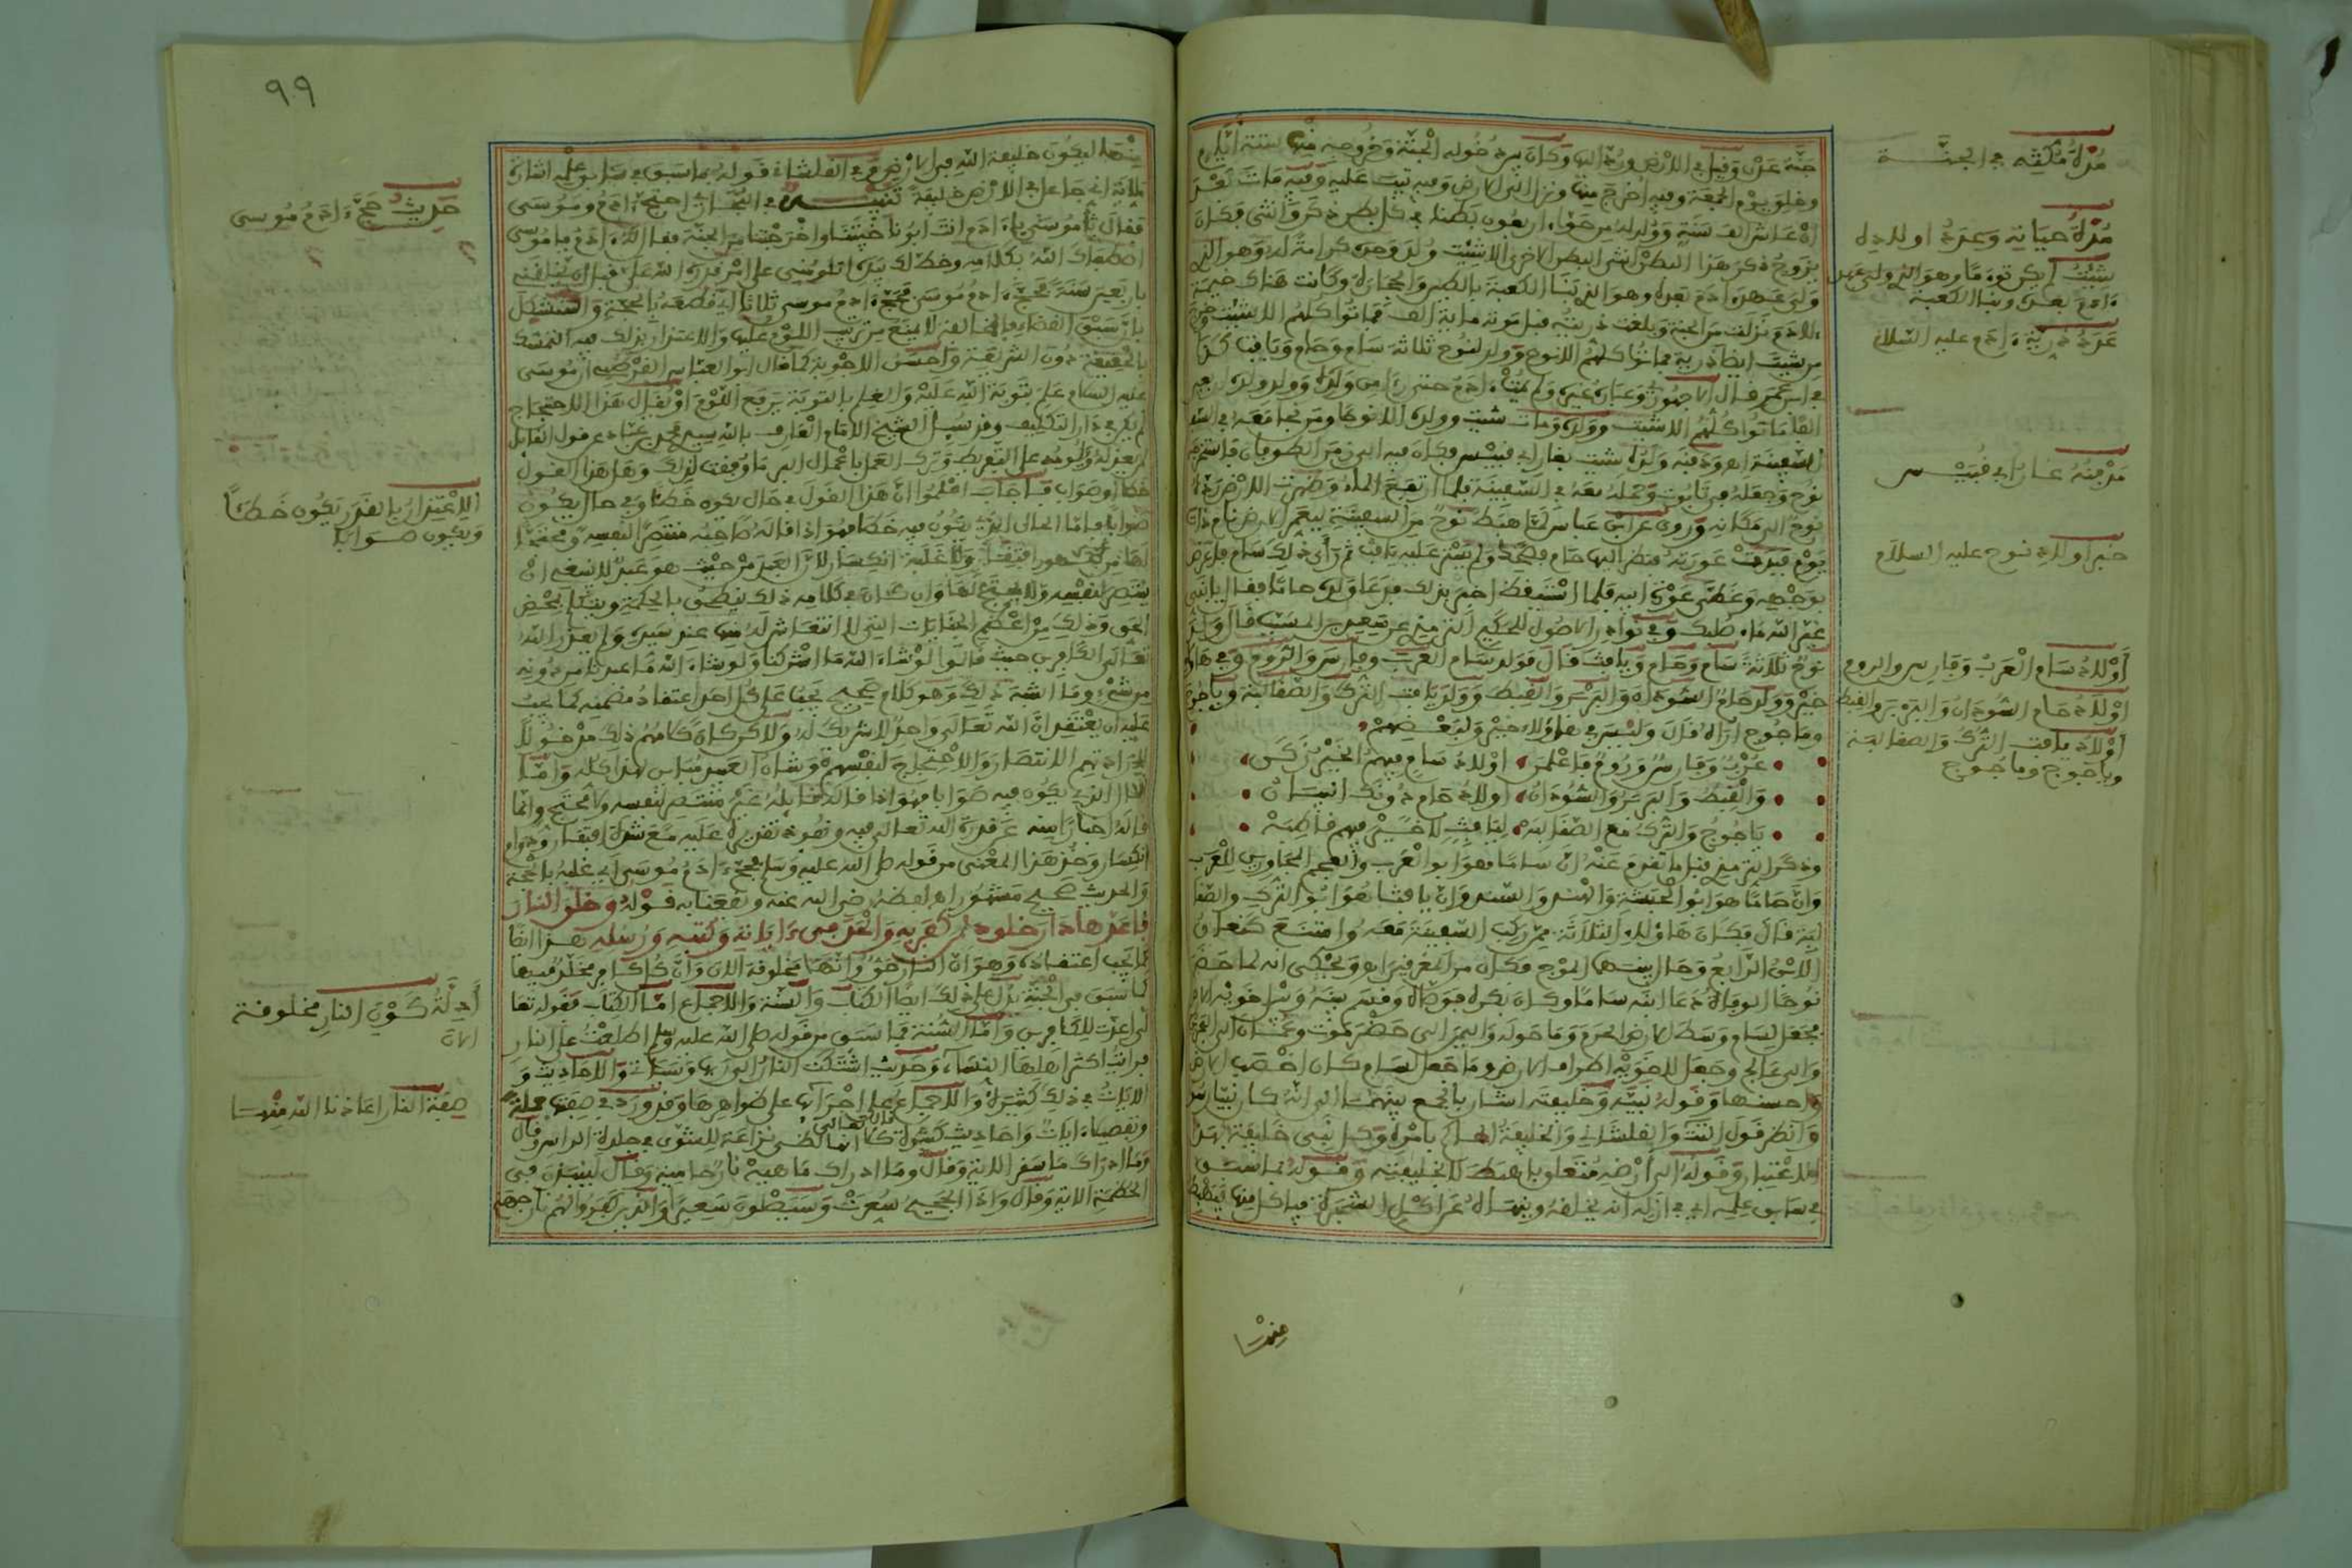 جنة عدن وقيل في الارض وردّ اليها وكان بين دخوله الجنة وخروجه منها ستة أيام
وخلق يوم الجمعة وفيه أخرج منها ونزل الى الارض وفيه تيب عليه وفيه مات بعد
ان عاش الف سنة وولد له من حواء اربعون بطنا في كل بطن ذكر وانثى فكان
يزوج ذكر هذا البطن انثى البطن الاخرى الا شيث ولد وحده كرامة له وهو الذي
ولي عهده ادم بعده وهو الذي بنا الكعبة بالطين والحجارة وكانت هناك خيمة
لادم نزلت من الجنة وبلغت ذريته قبل موته ماية الف فماتوا كلهم الا شيث
من شيث ايضا ذرية فماتوا كلهم الا نوح وولد لنوح ثلاثة سام وحام ويافث كذا
ابن عمر قال الاجهوري وعبارة غيره ولم يمت ادم حتى رأى من ولده وولد ولده اربعين
الفا ماتوا كلهم الا شيث وولده ومات شيث وولده الا نوحا ومن نجا معه في
السفينة اهـ ودفنه ولده شيث بغار ابي قبيس فكان فيه الى زمن الطوفان فاستخرجه
نوح وجعله في تابوت وحمله معه في السفينة فلما ارتفع الماء وظهرت الارض رده
نوح الى مكانه وروي عن ابن عباس لما هبط نوح من السفينة ليعمر الارض نام ذات
يوم فبدت عورته فنظر اليها حام فضحك ولم يستر عليه يافث ثم رأى ذلك سام فاعرض
بوجهه وغطى عورة ابيه فلما استيقظ اخبر بذلك فدعا ولده حاما فقال يا بني
غير الله ماء صلبك وفي نوادر الاصول للحكيم الترمذي عن سعيد بن المسيب قال ولد
نوح ثلاثة سام وحام ويافث قال فولد سام العرب وفارس والروم وفي هاؤلاء
خير وولد حام السودان والبربر والقبط وولد يافث الترك والصقالبة وياجوج
وماجوج اراه قال وليس في هاؤلاء خير ولبعضهم
عرب وفارس وروم فاعلمن اولاد سام فيهم الخير زكن
والقبط والبربر والسودان اولاد حام دونك انسان
ياجوج والترك مع الصقالبه ليافث لا خير فيهم فاطبه
وذكر الترمذي قبل ما تقدم عنه ان ساما فهو ابو العرب والعجم المجاورين للعرب
وان حاما هو ابو الحبشة والهند والسند وان يافثا هو ابو الترك والصقا
لبة قال فكان هاؤلاء الثلاثة ممن ركب السفينة معه وامتنع كنعان
الابن الرابع وحال بينهما الموج فكان من المغرقين اهـ ويحكى انه لما حضر
نوحا الوفاة دعا ابنه ساما وكان بكره فوصاه وقسم بينه وبين اخويه الارض
فجعل لسام وسط الارض الحرم وما حوله واليمن الى حضرموت وعمان الى البحرين
والى عالج وجعل لاخويه اطراف الارض وما جعل لسام كان اخصب الارض
واحسنها وقوله نبيه وخليفته اشار بالجمع بينهما الى انه كان نبيا رسولا
وانظر قول التتائي والفلشاني والخليفة الحاكم بامره وكل نبي خليفة بهذا
الاعتبار وقوله الى ارضه متعلق باهبط لا بخليفته وقوله بما سبق
في سابق علمه اي في ازله انه يخلقه وينهاه عن اكل الشجرة فياكل منها فيهبط
منها
مدة مكثه في الجنة
مدة حياته وعدة اولاده
شيث لم يكن توءما وهو الذي ولي عهد
ءادم بعده وبنا الكعبة
عدة ذرية ءادم عليه السلام
مدفنه غار أبي قبيس
خبر اولاد نوح عليه السلام
أولاد سام العرب وفارس والروم
اولاد حام السودان والبربر والقبط
أولاد يافث الترك والصقالبة
وياجوج وماجوج
٩٩
منها ليكون خليفة الله في الارض وفي الفلشاني قوله بما سبق في سابق علمه اشارة
لاية اني جاعل في الارض خليفة تنبيه في البخاري احتج ءادم وموسى
فقال يا موسى يا ءادم انت ابونا خيبتنا واخرجتنا من الجنة فقال له ءادم يا موسى
اصطفاك الله بكلامه وخط لك بيده اتلومني على امر قدره الله علي قبل ان يخلقني
باربعين سنة فحج ءادم موسى فحج ءادم موسى ثلاثا اي قطعه بالحجة واستشكل
بان سبق القضاء بالمخالفة لا يمنع من ترتيب اللوم عليها والاعتذار بذلك من التمسك
بالحقيقة دون الشريعة واحسن الاجوبة كما قال ابو العباس القرطبي ان موسى
عليه السلام علم بتوبة الله عليه والعلم بالتوبة يرفع اللوم او يقال هذا الاحتجاج
لم يكن في دار التكليف وقد سيل الشيخ الامام العارف بالله سيدي محمد بن عباد عن قول القايل
خطأ او صواب فاجاب اعلموا ان هذا القول في حال يكون خطأ وفي حال يكون
صوابا فاما الحال الذي يكون فيه خطأ فهو اذا قاله صاحبه منتصرا لنفسه ومحتجا
ينتصر لنفسه ولا يحتج لها وان كان في كلامه ذلك ينطق بالحكمة ويتكلم بمحض
الحق وذلك من أعظم الجنايات التي لا انتعاش له منها عند سيده ولم يعذر الله
تعالى الكافرين حيث قالوا لو شاء الله ما اشركنا ولو شاء الله ما عبدنا من دونه
من شيء وما اشبه ذلك وهو كلام صحيح يجب على كل احد اعتقاد مضمنه كما يجب
عليه ان يعتقد ان الله تعالى واحد لا شريك له ولاكن كان كلامهم ذلك مدخولا
لارادتهم الانتصار والاحتجاج لنفسهم وشان العبد مباين لهذا كله واما
الحال الذي يكون فيه صوابا فهو اذا قاله قايله غير منتصر لنفسه ولا محتج وانما
قاله اخبارا منه عن قدرة الله تعالى فيه ونفوذ تقديره عليه مع شدة افتقار ودوام
انكسار وخذ هذا المعنى من قوله صلى الله عليه وسلم فحج ءادم موسى اي غلبه بالحجة
والحديث صحيح مشهور اهـ لفظه رضي الله عنه ونفعنا به قوله وخلق النار
فاعدها دار خلود لمن كفر به والحد في ءاياته وكتبه ورسله هذا ايضا
مما يجب اعتقاده وهو ان النار حق وانها مخلوقة الان وان كل كافر مخلد فيها
كما سبق في الجنة يدل على ذلك ايضا الكتاب والسنة والاجماع اما الكتاب فقوله تعا
لى اعدت للكافرين واما السنة فما سبق من قوله صلى الله عليه وسلم اطلعت على النار
فرايت اكثر اهلها النساء وحديث اشتكت النار الى ربها وسبق والاحاديث و
الايات في ذلك كثيرة والاجماع على اجرائها على ظواهرها وقد ورد في صفتها جملة
وتفصيلا ءايات واحاديث كثيرة قال تعالى كلا انها لظى نزاعة للشوى في جلدة الراس وقال
وما ادراك ما سقر الاية وقال وما ادراك ما هيه نار حامية وقال لينبذن في
الحطمة الاية وقال واذا الجحيم سعرت وسيصلون سعيرا والذين كفروا لهم نار جهنم
حديث حج ءادم موسى
الاعتذار بالقدر يكون خطئا
ويكون صوابا
أدلة كون النار مخلوقة
الان
صفة النار اعاذنا الله منها